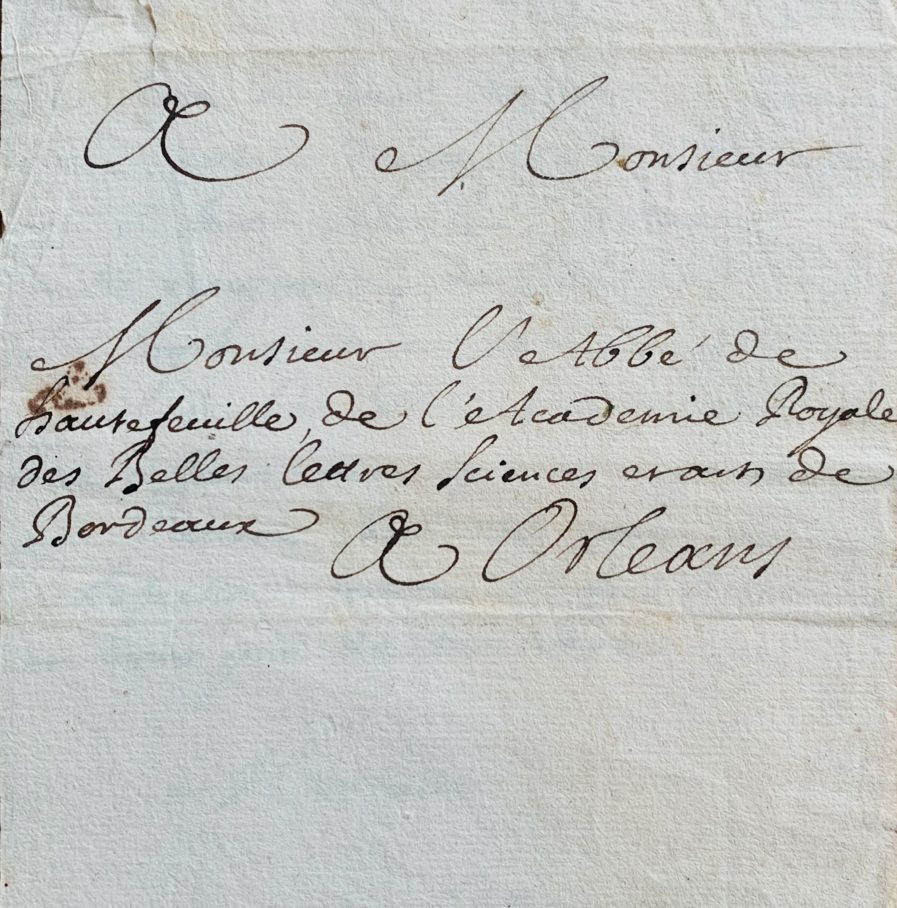 A Monsieur
Monsieur L'Abbé de
hautefeuille, de l'Academie Royale
des Belles lettres Sciences et arts de
Bordeaux
A Orleans